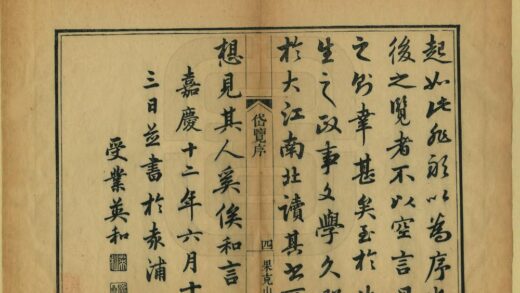 起如此非敢以為序
後之覽者不以空言
之則幸甚矣至於
生之政事文學久
於大江南北讀其
想見其人奚俟和言
岱覽序
四
果克山
嘉慶十二年六月十
三日並書於袁浦
受業英和